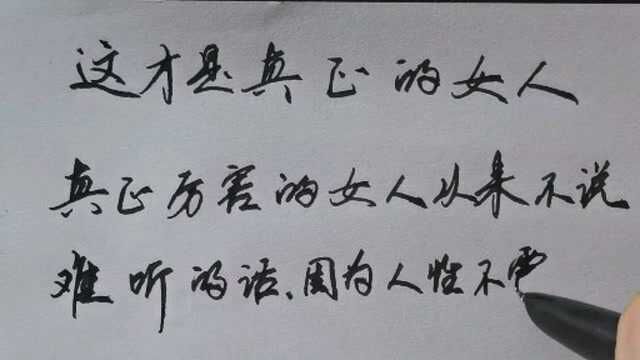 这才是真正的女人
真正厉害的女人从来不说
难听的话、因为人性不